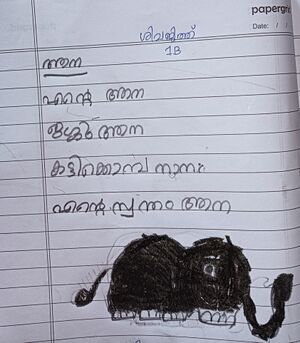 papergri
Date: / /
ശിവജിത്ത്
1B
ആന
എന്റെ ആന
ആന
എന്റെ സ്വന്തം ആന